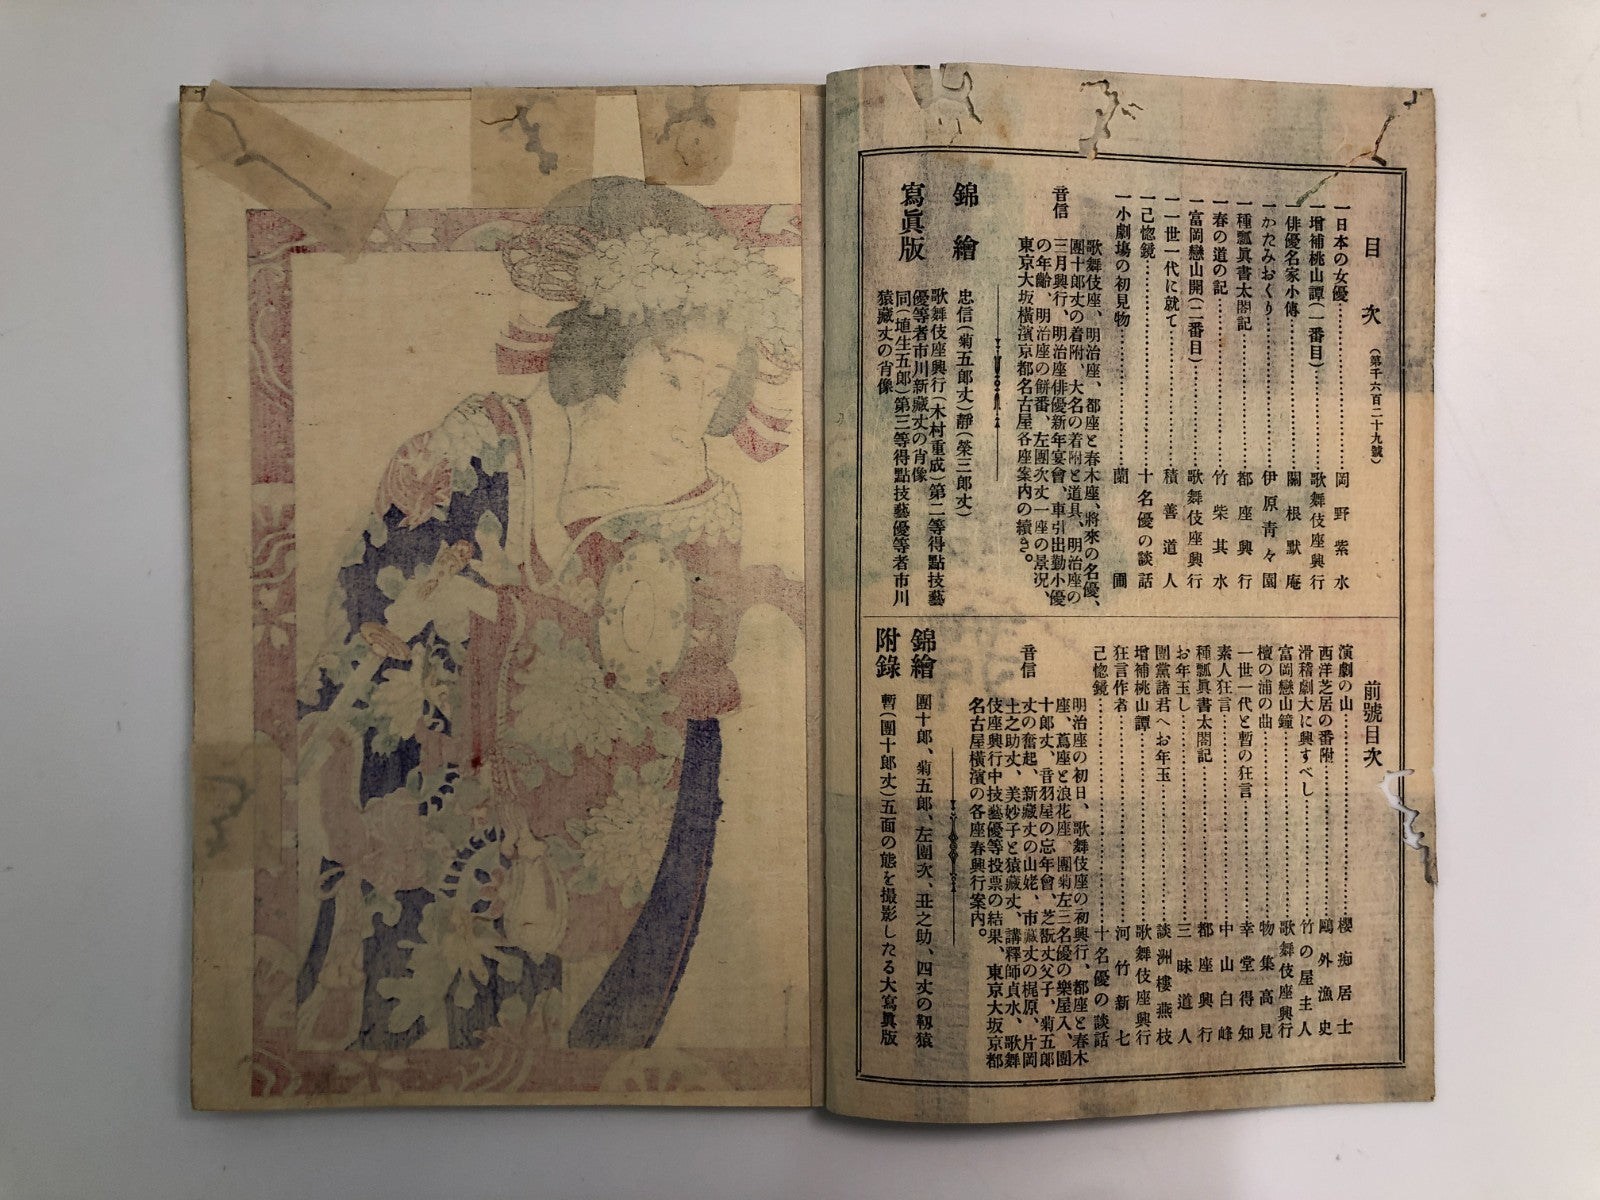 目次
(第千六百二十九號)
一日本の女優………岡野紫水
一增補桃山譚(一番目)………歌舞伎座興行
一俳優名家小傳………關根默庵
一かたみおくり………伊原靑々園
一種瓢眞書太閤記………都座興行
一春の道の記………竹柴其水
一富岡戀山開(二番目)………歌舞伎座興行
一一世一代に就て………積善道人
一己惚鏡………十名優の談話
一小劇場の初見物………蘭圃
音信
歌舞伎座、明治座、都座と春木座、將來の名優、
團十郎丈の着附、大名の着附と道具、明治座の
三月興行、明治座俳優新年宴會、車引出勤小優
の年齡、明治座の餠番、左團次丈一座の景況、
東京大坂橫濱京都名古屋各座案內の續き。
錦繪
忠信(菊五郎丈)靜(榮三郎丈)
寫眞版
歌舞伎座興行(木村重成)第二等得點技藝
優等者市川新藏丈の肖像
同(埴生五郎)第三等得點技藝優等者市川
猿藏丈の肖像
前號目次
演劇の山………櫻痴居士
西洋芝居の番附………鷗外漁史
滑稽劇大に興すべし………竹の屋主人
富岡戀山鐘………歌舞伎座興行
檀の浦の曲………物集高見
一世一代と暫の狂言………幸堂得知
素人狂言………中山白峰
種瓢眞書太閤記………都座興行
お年玉し………三昧道人
團黨諸君へお年玉………談洲樓燕枝
增補桃山譚………歌舞伎座興行
狂言作者………河竹新七
己惚鏡………十名優の談話
音信
明治座の初日、歌舞伎座の初興行、都座と春木
座、蔦座と浪花座、團菊左三名優の樂屋入、團
十郎丈、音羽屋の忘年會、芝翫丈父子、菊五郎
丈の奮起、新藏丈の山姥、市藏丈の梶原、片岡
土之助丈、美妙子と猿藏丈、講釋師貞水、歌舞
伎座興行中技藝優等投票の結果、東京大坂京都
名古屋橫濱の各座春興行案內。
錦繪
團十郎、菊五郎、左團次、丑之助、四丈の靱猿
附錄
暫(團十郎丈)五面の態を撮影したる大寫眞版